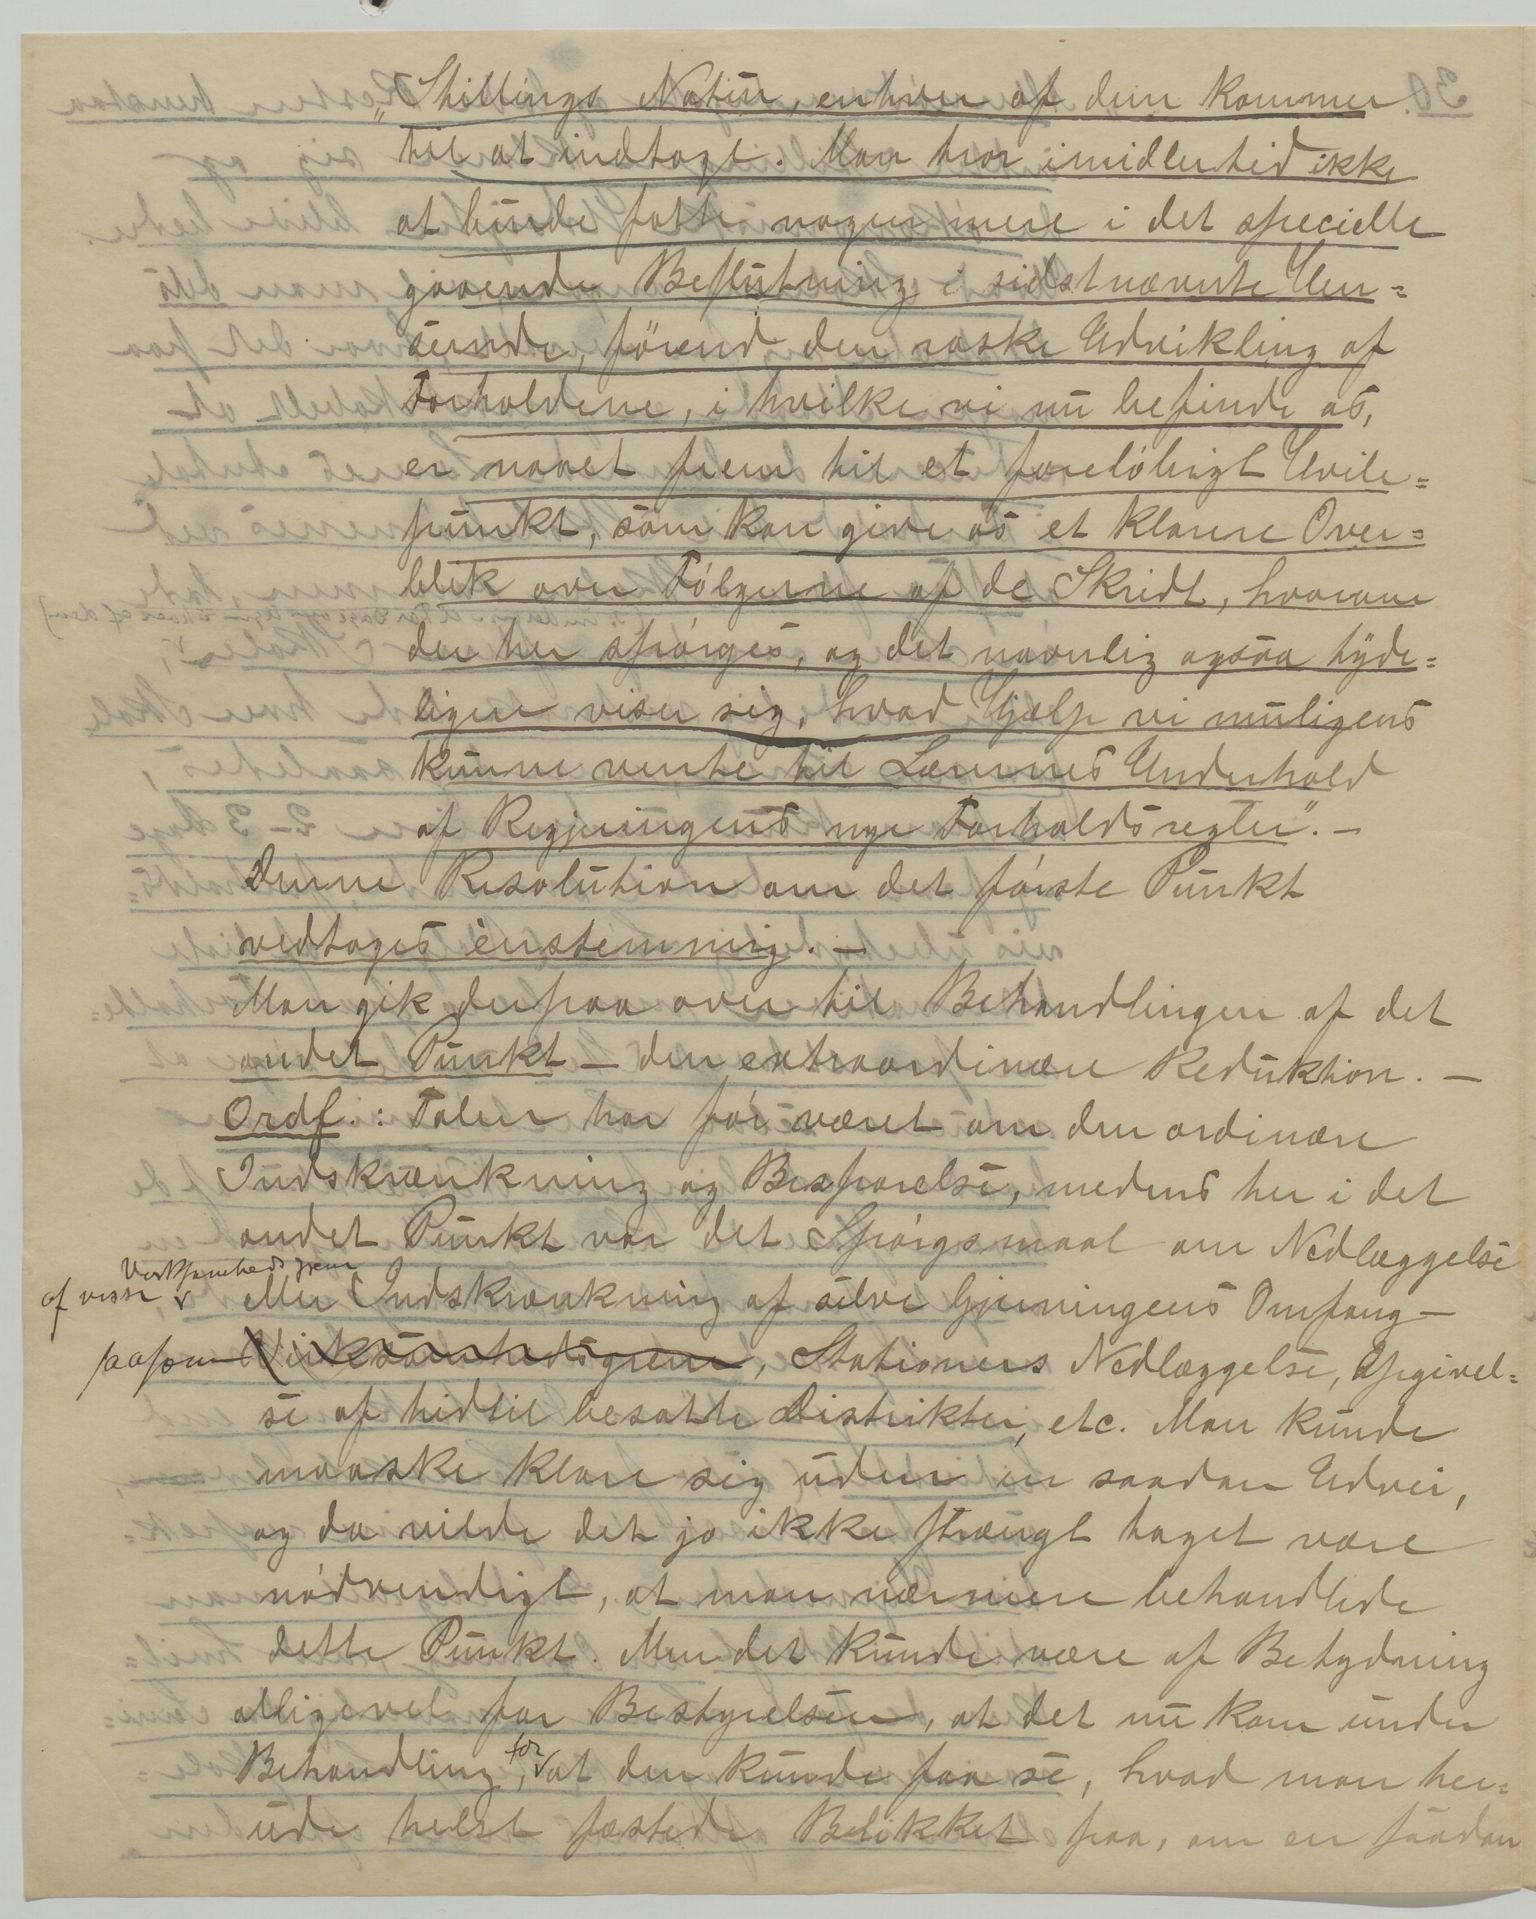 "Stillings Natur, enhver af dem kommer
til at indtage. Man tror imidlertid ikke
at kunde fatte nogen mere i det specielle
gaaende Beslutning i sidstnævnte Hen-
seende, førend den raske Udvikling af
Forholdene, i hvilke vi nu befinde os,
er naaet frem til et foreløbigt Hvile-
punkt, som kan give os et klarere Over-
blik over Følgerne af de Skridt, hvorom
der her spørges, og det navnlig ogsaa tyde-
ligere viser sig, hvad Hjælp vi muligens
kunne vente til Lærernes Underhold
af Regjeringens nye Forholdsregler". —
Denne Resolution om det første Punkt
vedtages enstemmig. —
Man gik derpaa over til Behandlingen af det
andet Punkt — den extraordinære Reduktion. —
Ordf.: Talen har før været om den ordinære
Indskrænkning og Besparelse, medens her i det
andet Punkt var det Spørgsmaal om Nedlæggelse
af visse Virksomhedsgrene eller Indskrænkning af selve Gjerningens Omfang —
saasom Virksomhedsgrene, Stationers Nedlæggelse, Opgivel-
se af hidtil besatte Distrikter, etc. Man kunde
maaske klare sig uden en saadan Udvei,
og da vilde det jo ikke strængt taget være
nødvendigt, at man nærmere behandlede
dette Punkt. Men det kunde være af Betydning
alligevel for Bestyrelsen, at det nu kom under
Behandling, for at den kunde faa se, hvad man her-
ude helst fæstede Blikket paa, om en saadan